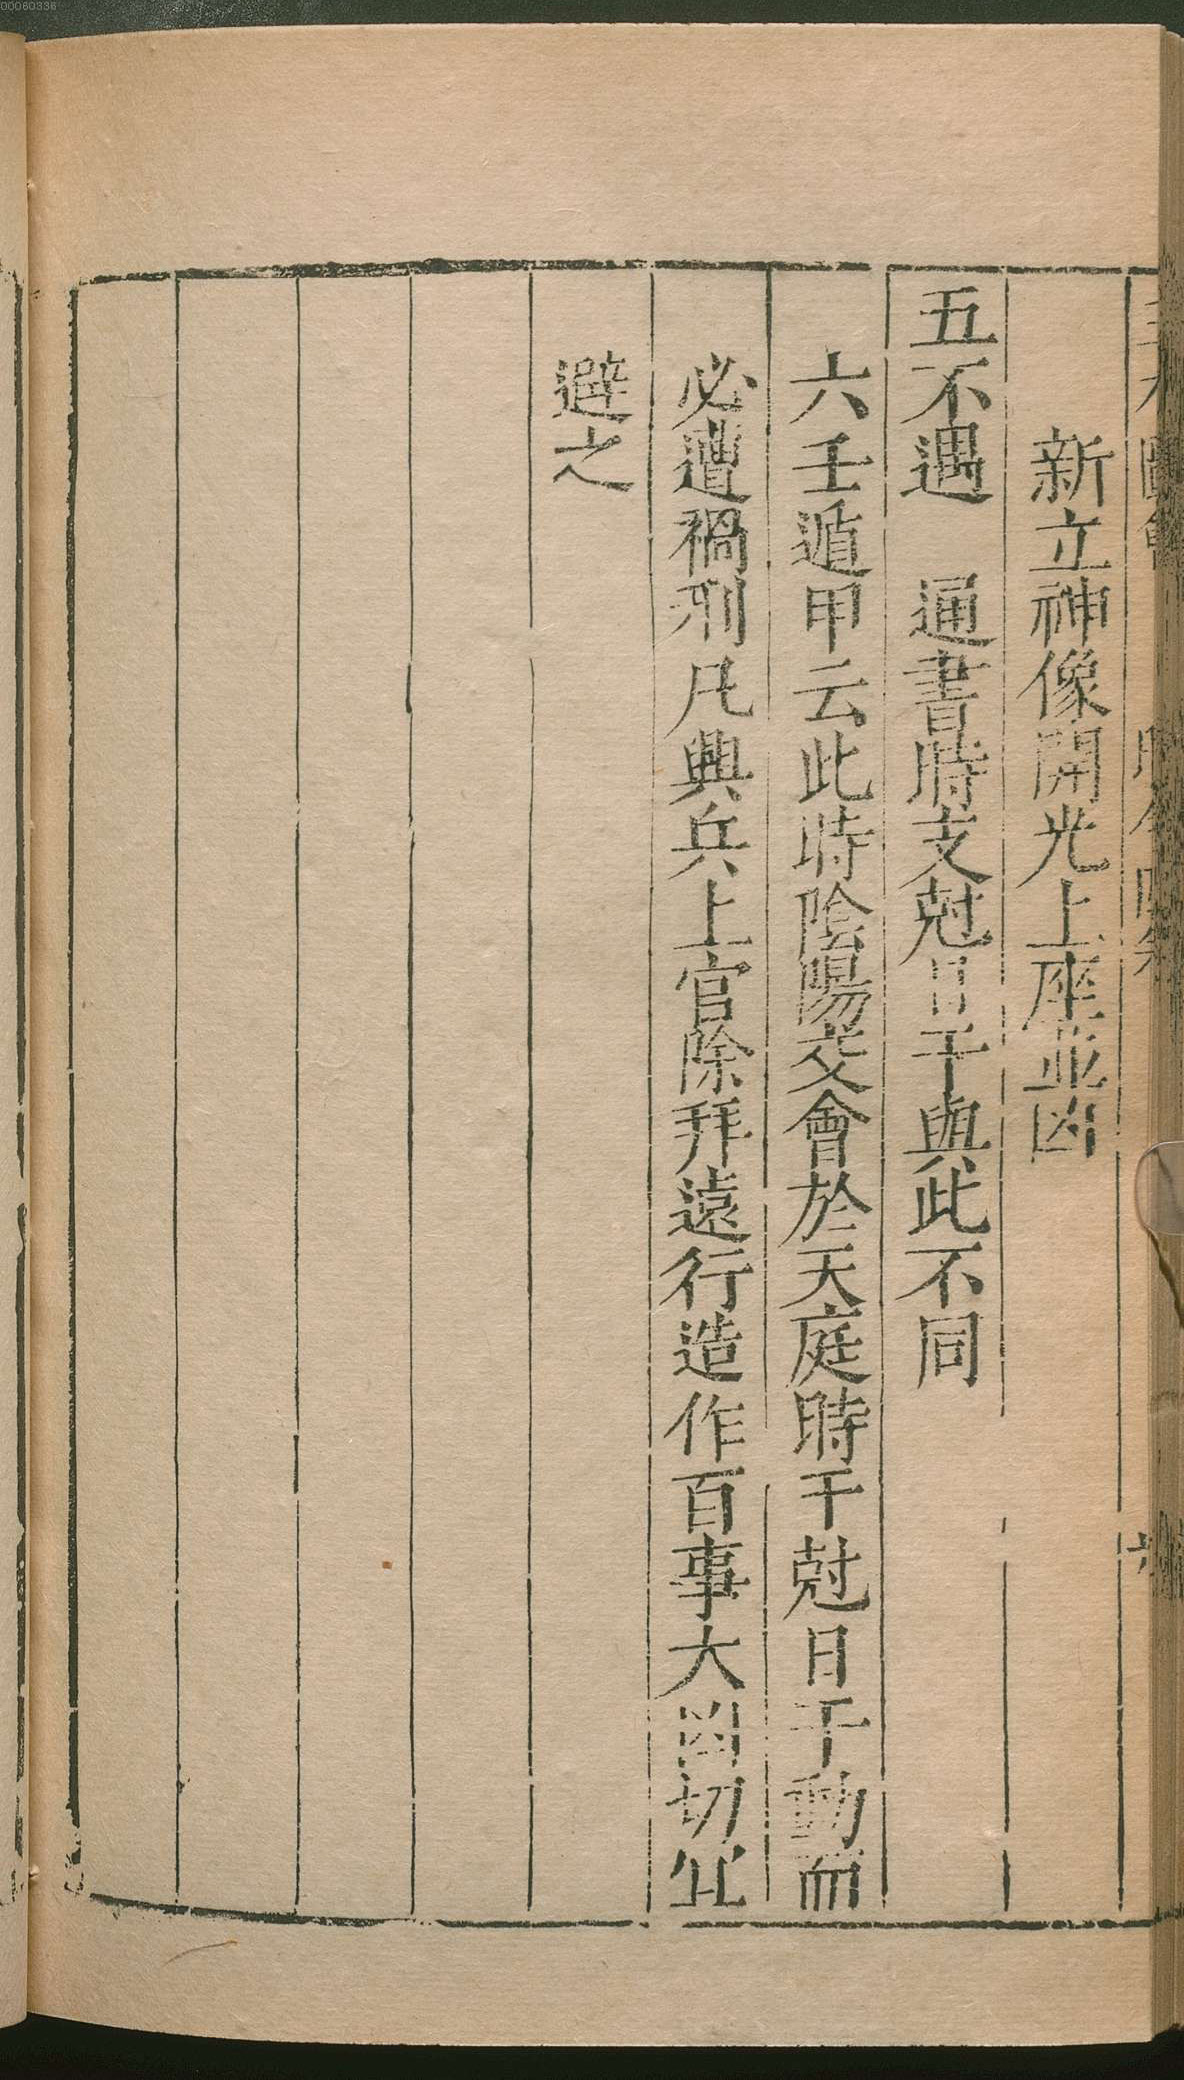 00060336
新立神像開光上座並凶
五不遇　通書時支尅日干與此不同
六壬遁甲云此時陰陽交會於天庭時干尅日干動而
必遭禍刑凡興兵上官除拜遠行造作百事大凶切宜
避之